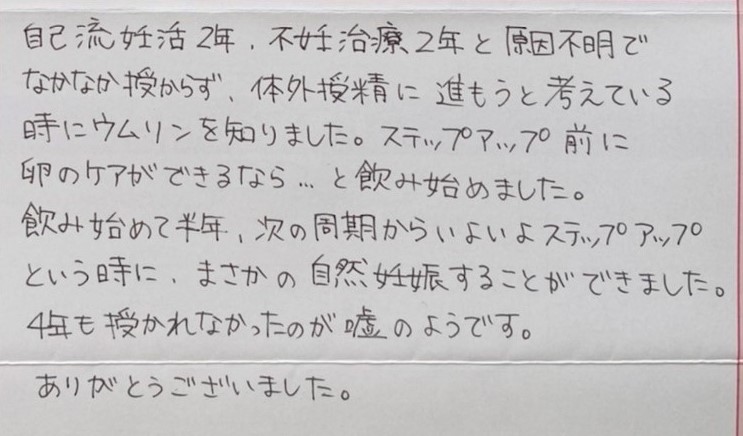 自己流妊活2年、不妊治療2年と原因不明で
なかなか授からず、体外授精に進もうと考えている
時にウムリンを知りました。ステップアップ前に
卵のケアができるなら…と飲み始めました。
飲み始めて半年、次の周期からいよいよステップアップ
という時に、まさかの自然妊娠することができました。
4年も授かれなかったのが嘘のようです。
ありがとうございました。